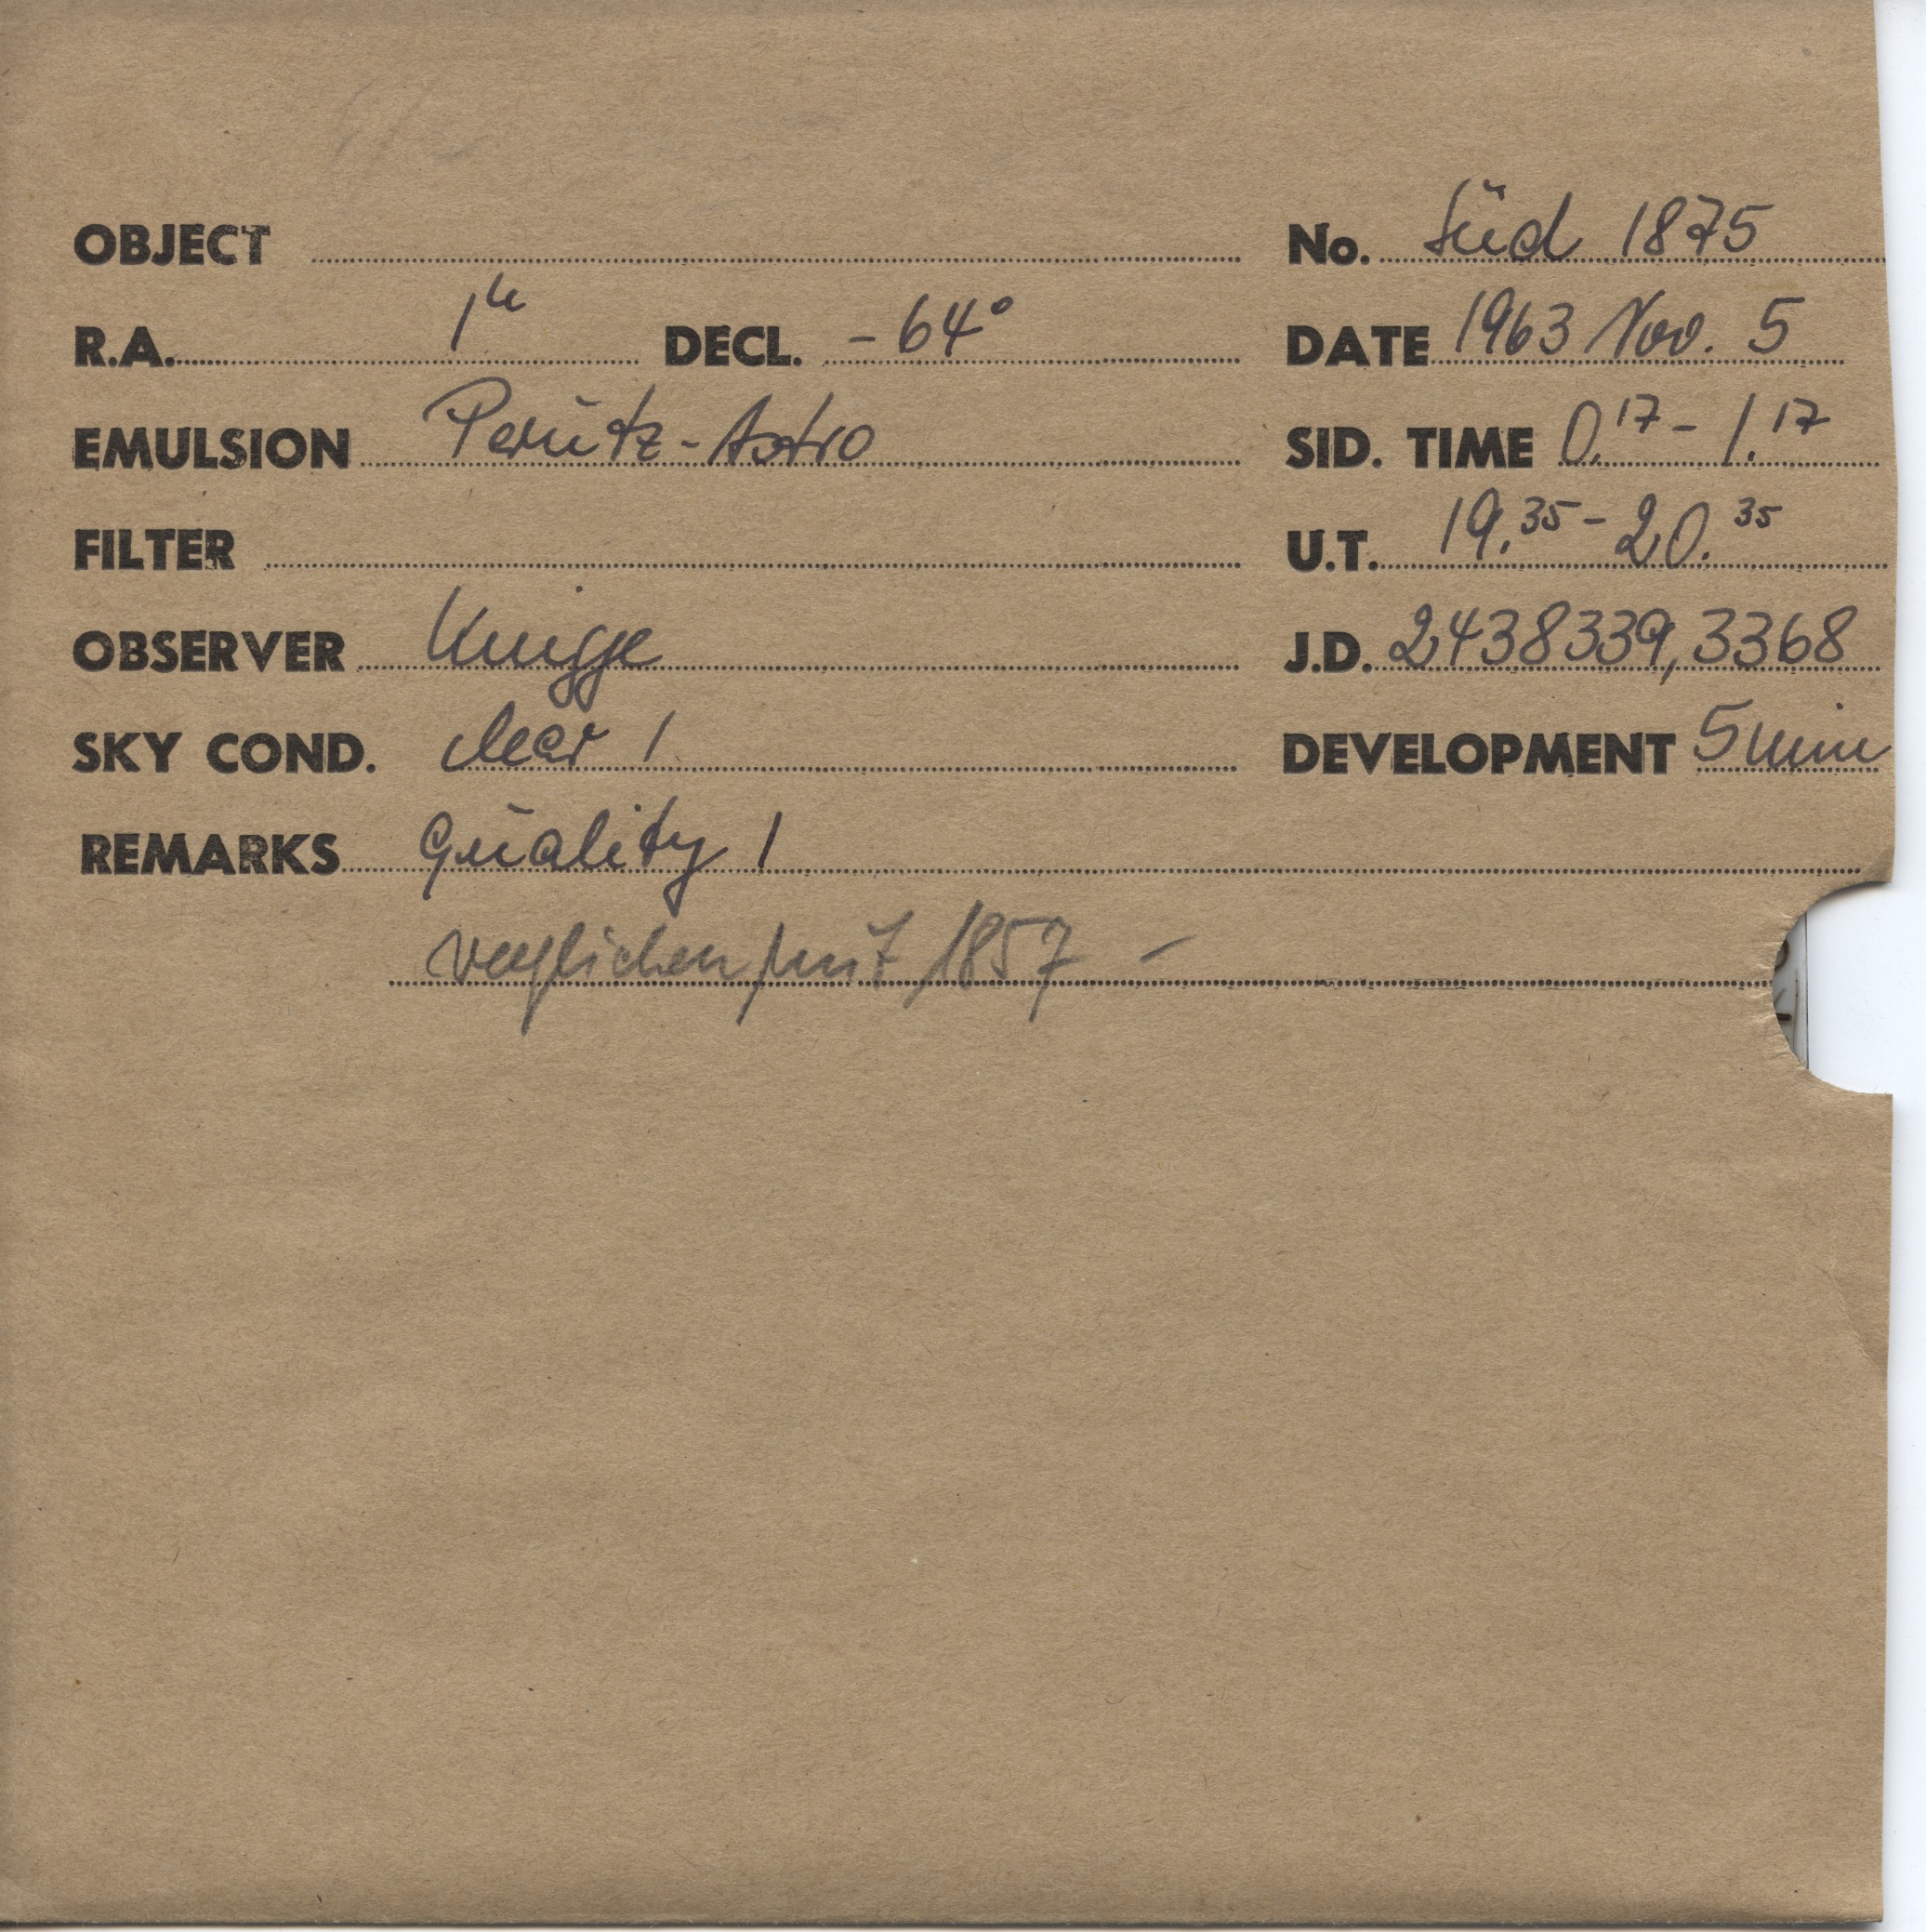 OBJECT No. Süd 1875
R.A. 1h DECL. -64° DATE 1963 Nov. 5
EMULSION Perutz-Astro SID. TIME 0.17 - 1.17
FILTER U.T. 19.35 - 20.35
OBSERVER Knigge J.D. 2438339,3368
SKY COND. clear 1 DEVELOPMENT 5 min
REMARKS Quality 1
verglichen mit 1857 -